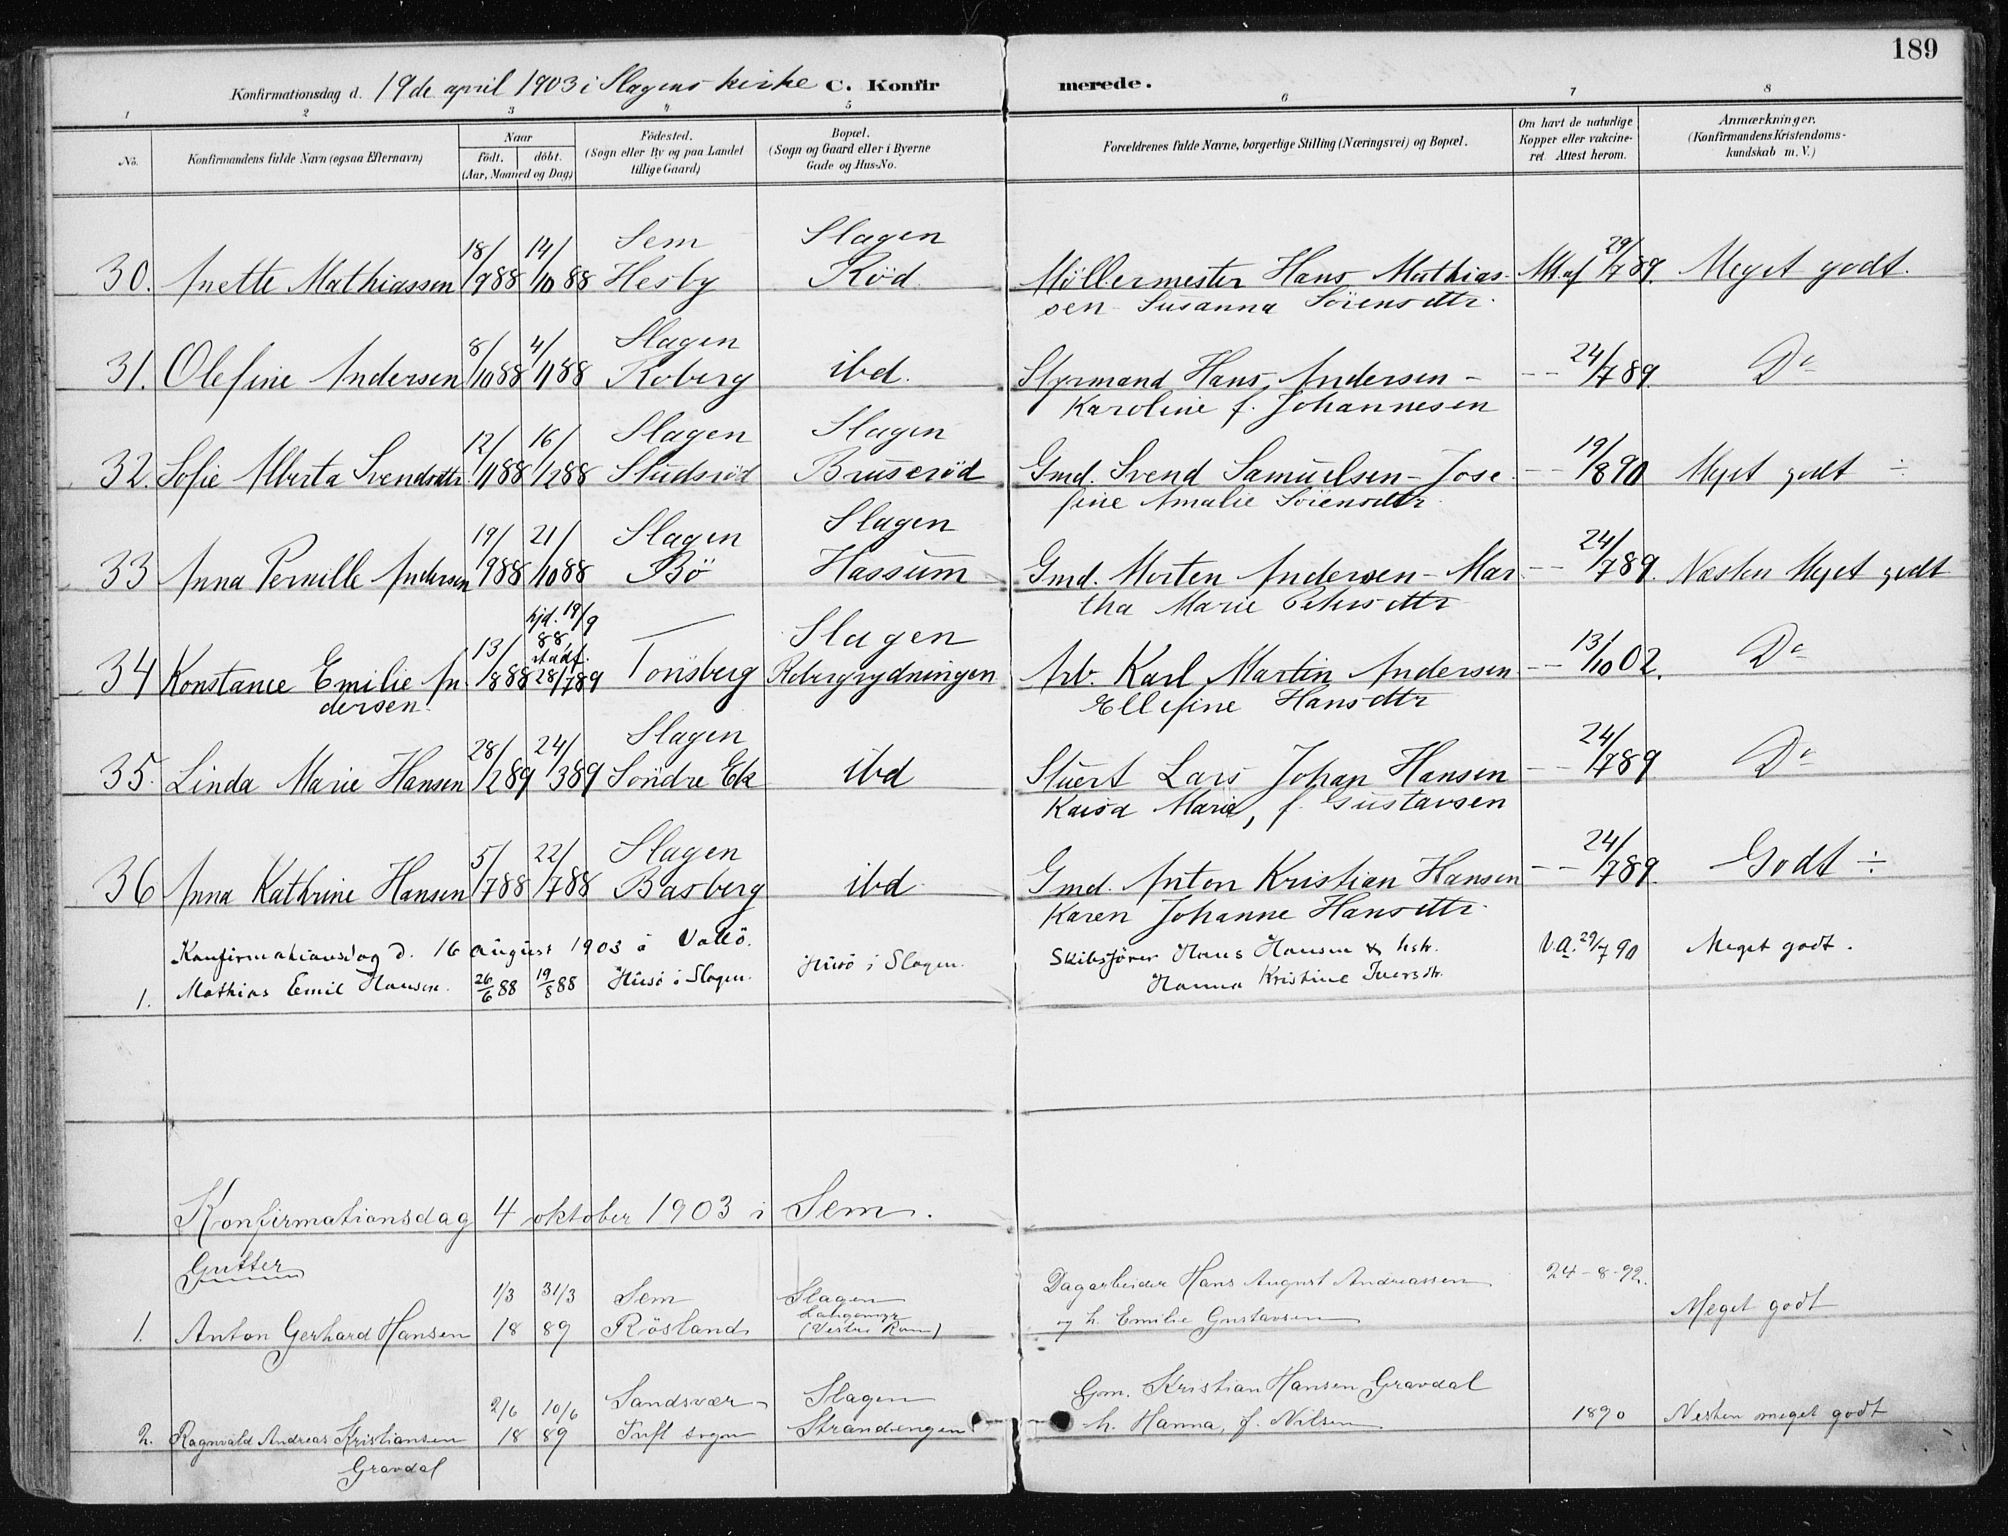 189
Konfirmationsdag d. 19de april 1903 i Slagens kirke C. Konfirmerede.
1 2 3 4 5 6 7 8
No. Konfirmandens fulde Navn (ogsaa Efternavn) Naar født. døbt. (Aar, Maaned og Dag) Fødested. (Sogn eller By og paa Landet tillige Gaard) Bopæl. (Sogn og Gaard eller i Byerne Gade og Hus-No. Forældrenes fulde Navne, borgerlige Stilling (Næringsvei) og Bopæl. Om havt de naturlige Kopper eller vakcineret. Attest herom. Anmærkninger. (Konfirmandens Kristendomskundskab m. V.)
18/ 14/ Sem Slagen 29/
30. Anette Mathiassen /988 /1088 Hesby Rød. Møllermester Hans Mathias- Att. af /789. Meget godt.
sen - Susanna Sørensdtr.
8/ 4/ Slagen
31. Olefine Andersen /1088 /1188 Roberg ibd. Styrmand Hans Andersen - -- 24/789. Do
Karoline f. Johannesen
12/ 16/ Slagen Slagen 19/
32. Sofie Alberta Svendsdtr. /1188 /1288 Studsrød Bruserød Gmd. Svend Samuelsen - Jose- -- /890 Meget godt ÷
fine Amalie Sørensdtr.
19/ 21/ Slagen Slagen 24/
33 Anna Pernille Andersen /988 /1088 Bø Hassum Gmd. Morten Andersen - Mar- -- /789. Næsten Meget godt
tha Marie Petersdtr
hjd. 19/9
13/ 88, stadf. — Slagen 13/
34 Konstance Emilie An- /888 28/789 Tønsberg Robergrydningen Arb. Karl Martin Andersen -- /1002. Do
dersen. Ellefine Hansdtr
28/ 24/ Slagen 24/
35. Linda Marie Hansen /289 /389 Søndre Ek ibd Stuert Lars Johan Hansen -- /789 Do
Kaisa Marie, f. Gustavsen
5/ 22/ Slagen 24/
36 Anna Kathrine Hansen /788 /788 Basberg ibd. Gmd. Anton Kristian Hansen -- /789. Godt ÷
Karen Johanne Hansdtr.
Konfirmationsdag d. 16 august 1903 å Vallö. Husö i Slagen. Skibsfører Hans Hansen & hstr. V.A. 29/7 90 Meget godt.
1. Mathias Emil Hansen. 26/6 88 19/8 88 Husö i Slagen. Hanna Kristine Iversdtr.
Konfirmationsdag 4 oktober 1903 i Sem.
Gutter
1/3 31/3 Sem Slagen Dagarbeider Hans August Andreassen 24-8-92.
1. Anton Gerhard Hansen 18 89 Røsland (Vestre Ram) og h. Emilie Gustavsen Meget godt
2/6 10/6 Sandsvær Slagen Gm. Kristian Hansen Gravdal
2. Ragnvald Andreas Kristiansen 18 89 Tuft sogn Strandengen h. Hanna, f. Nilsen 1890 Nesten meget godt
Gravdal